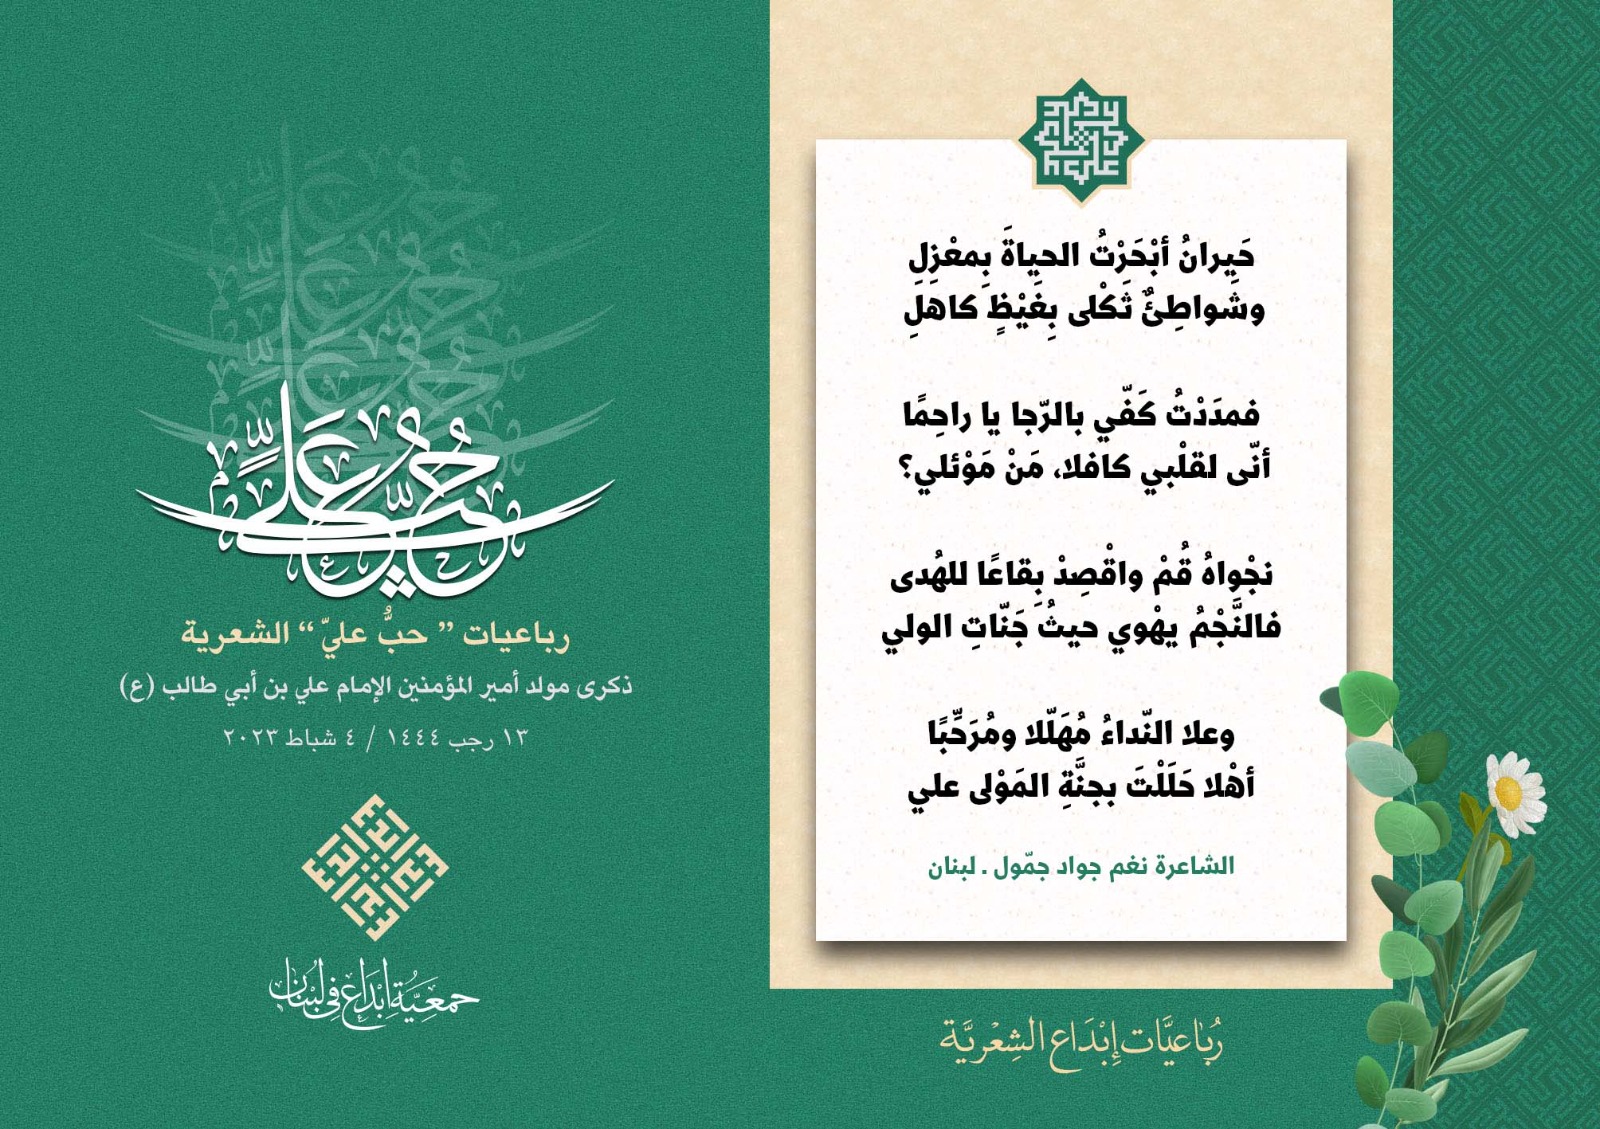 حَيرانُ أبْحَرْتُ الحياةَ بِمعْزِلِ
وشواطِئٌ ثَكْلى بِغَيْظٍ كاهلِ
فمدَدْتُ كَفّي بالرّجا يا راحِمًا
أنّى لقلْبي كافلا، مَنْ مَوْئلي؟
نجْواهُ قُمْ واقْصِدْ بِقاعًا للهُدى
فالنَّجْمُ يهْوي حيثُ جَنّاتِ الولي
وعلا النّداءُ مُهَلّلا ومُرَحِّبًا
أهْلا حَلَلْتَ بجنَّةِ المَوْلى علي
الشاعرة نغم جواد جمّول . لبنان
رُبَاعيَّات إِبْدَاع الشِعْريَّة
حُبُّ عَلِيٍّ
رباعيات " حبُّ عليّ " الشعرية
ذكرى مولد أمير المؤمنين الإمام علي بن أبي طالب (ع)
١٣ رجب ١٤٤٤ / ٤ شباط ٢٠٢٣
جمعيّة إبْدَاع في لبْنَان